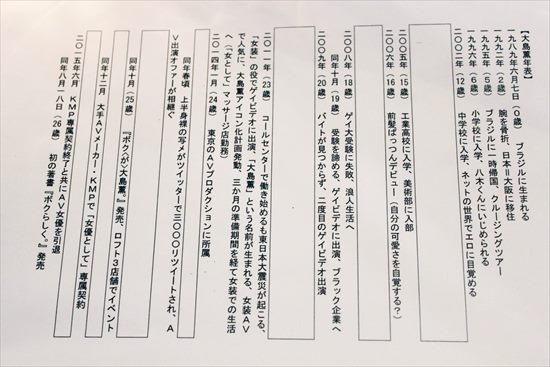 【大島薫年表】
一九八九年六月七日(0歳) ブラジルに生まれる
一九九二年(2歳) 腕を骨折、日本=大阪に移住
一九九五年(5歳) ブラジルに一時帰国、クルージングツアー
一九九六年(6歳) 小学校に入学、八木くんにいじめられる
二〇〇二年(12歳) 中学校に入学、ネットの世界でエロに目覚める
二〇〇五年(15歳) 工業高校に入学、美術部に入部
二〇〇六年(16歳) 前髪ぱっつんデビュー(自分の可愛さを自覚する?)
二〇〇八年(18歳) ゲイ大受験に失敗、浪人生活へ
同年十月(19歳) 受験を諦める、ゲイビデオに出演、ブラック企業へ
二〇〇九年(20歳) バイトが見つからず、二度目のゲイビデオ出演
二〇一一年(23歳) コールセンターで働き始めるも東日本大震災が起こる、
「女装」の役でゲイビデオに出演、「大島薫」という名前が生まれる、女装AV
で人気に、大島薫アイコン化計画発動、三か月の準備期間を経て女装での生活
へ(「女として」マッサージ店勤務)
二〇一四年一月(24歳) 東京のAVプロダクションに所属
同年春頃 上半身裸の写メがツイッターで三〇〇〇リツイートされ、A
V出演オファーが相継ぐ
同年十月(25歳) 『ボクが♂大島薫。』発売、ロフト3店舗でイベント
同年十二月 大手AVメーカー・KMPで「女優として」専属契約
二〇一五年六月 KMP専属契約終了と共にAV女優を引退
同年八月一八日(26歳) 初の著書『ボクらしく。』発売